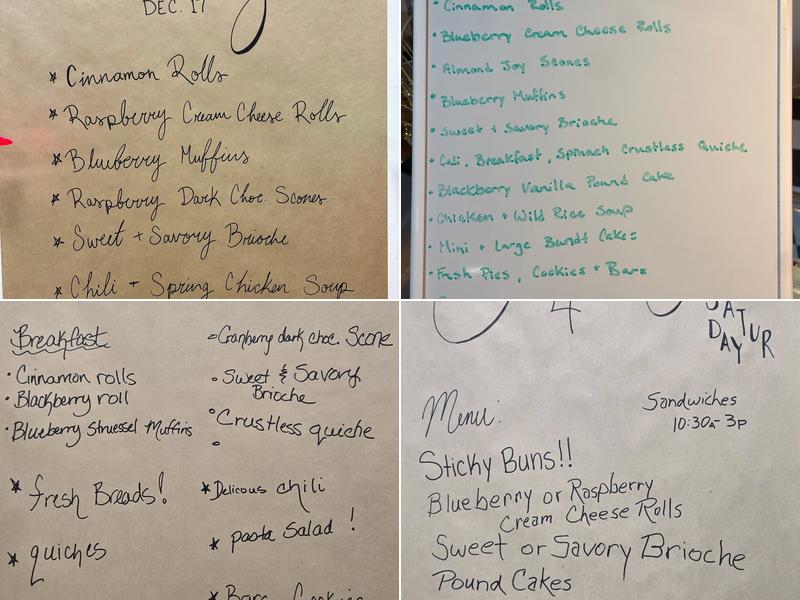 DEC. 17
* Cinnamon Rolls
* Raspberry Cream Cheese Rolls
* Blueberry Muffins
* Raspberry Dark Choc. Scones
* Sweet + Savory Brioche
* Chili + Spring Chicken Soup
• Cinnamon Rolls
• Blueberry Cream Cheese Rolls
• Almond Joy Scones
• Blueberry Muffins
• Sweet + Savory Brioche
• Cali, Breakfast, Spinach Crustless Quiche
• Blackberry Vanilla Pound Cake
• Chicken + Wild Rice Soup
• Mini + Large Bundt Cakes
• Fresh Pies, Cookies + Bars
Breakfast
• Cinnamon rolls
• Blackberry roll
• Blueberry Struessel Muffins
* fresh Breads!
* quiches
• Cranberry dark choc. Scone
• Sweet & Savory
Brioche
• Crustless quiche
* Delicous chili
* pasta Salad!
* Bars
SATURDAY
Menu:
Sandwiches
10:30a-3p
Sticky Buns!!
Blueberry or Raspberry
Cream Cheese Rolls
Sweet or Savory Brioche
Pound Cakes